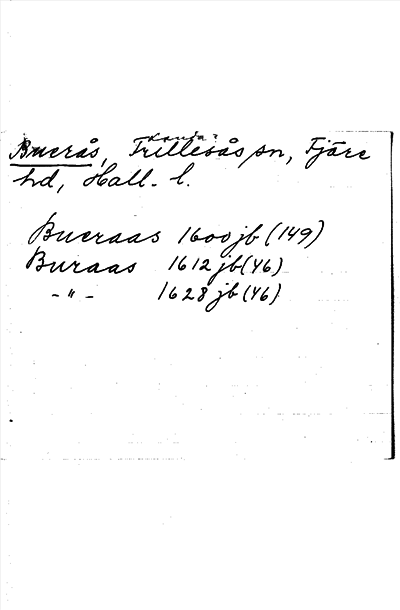 Landa?
Buerås, Frillesås sn, Fjäre
hd, Hall. l.
Bueraas 1600 jb (149)
Buraas 1612 jb (46)
-"- 1628 jb (46)